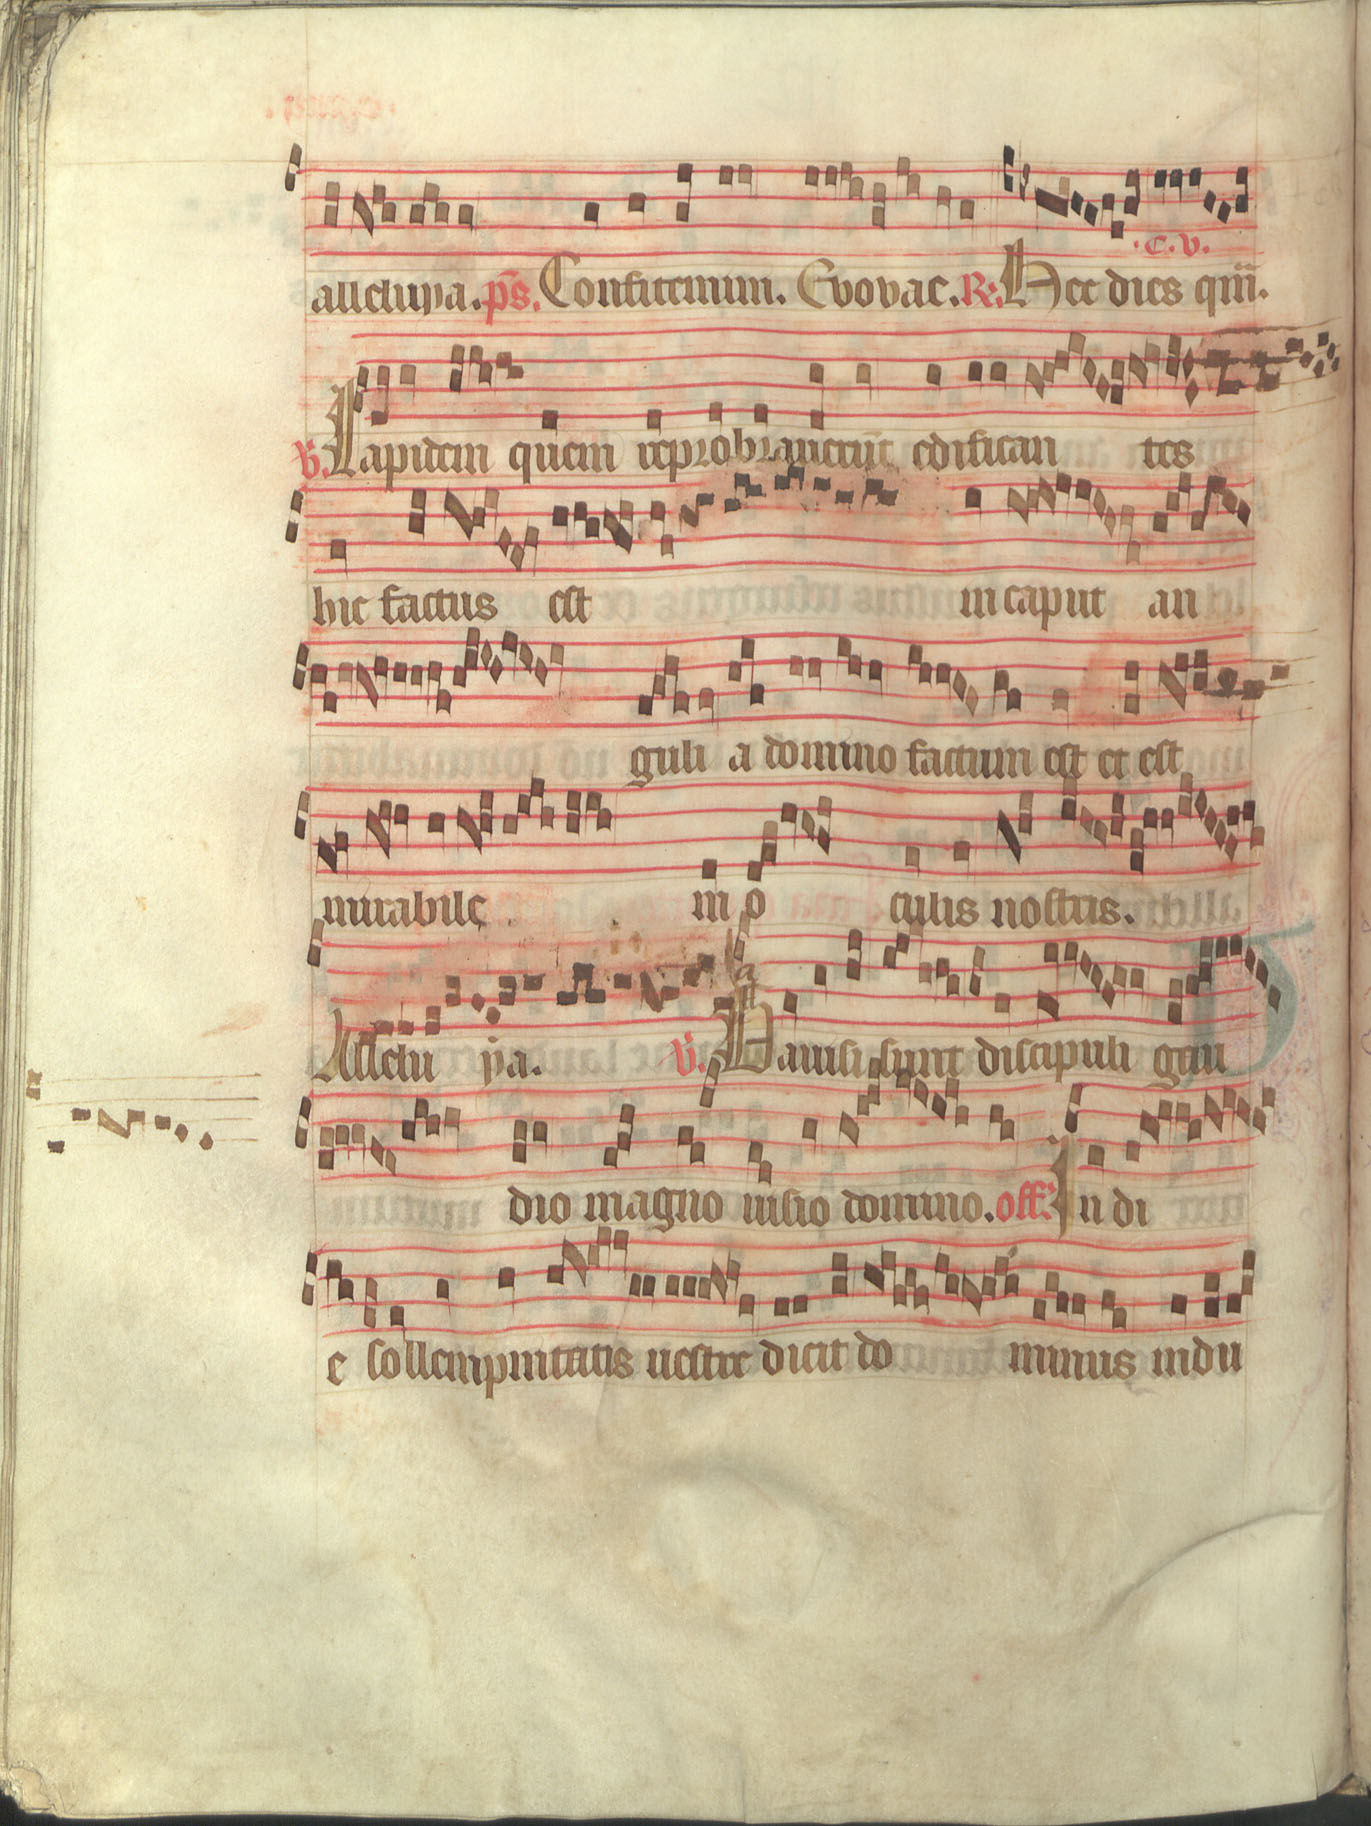 .c.v.
alleluya. p̄s. Confitemini. Evovae. R. Hec dies qm̄.
V. Lapidem quem reprobauerūt edifican tes
hic factus est in caput an
guli a domino factum est et est
mirabile in o culis nostris.
a
Alleluya. V. Gauisi sunt discipuli gau
dio magno uiso domino. off. In di
e sollempnitatis uestre dicit do minus indu